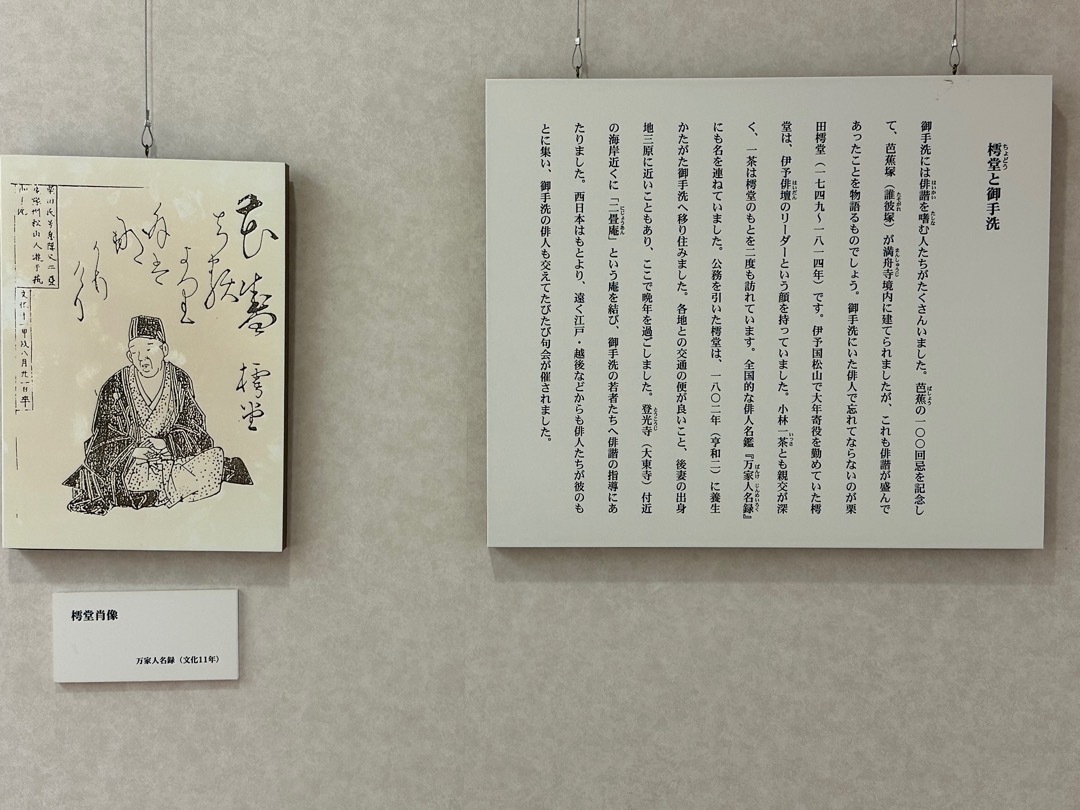 樗堂と御手洗
ちょどう
御手洗には俳諧を嗜む人たちがたくさんいました。芭蕉の一〇〇回忌を記念し
はいかい
たしな
ばしょう
て、芭蕉塚（誰彼塚）が満舟寺境内に建てられましたが、これも俳諧が盛んで
たそがれ
まんしゅうじ
あったことを物語るものでしょう。御手洗にいた俳人で忘れてならないのが栗
田樗堂（一七四九～一八一四年）です。伊予国松山で大年寄役を勤めていた樗
堂は、伊予俳壇のリーダーという顔を持っていました。小林一茶とも親交が深
はいだん
いっさ
く、一茶は樗堂のもとを二度も訪れています。全国的な俳人名鑑『万家人名録』
ばんけ
じんめいろく
にも名を連ねていました。公務を引いた樗堂は、一八〇二年（亨和二）に養生
かたがた御手洗へ移り住みました。各地との交通の便が良いこと、後妻の出身
地三原に近いこともあり、ここで晩年を過ごしました。登光寺（大東寺）付近
とうこうじ
の海岸近くに「二畳庵」という庵を結び、御手洗の若者たちへ俳諧の指導にあ
にじょうあん
たりました。西日本はもとより、遠く江戸・越後などからも俳人たちが彼のも
とに集い、御手洗の俳人も交えてたびたび句会が催されました。
樗堂
樗堂肖像
万家人名録（文化11年）